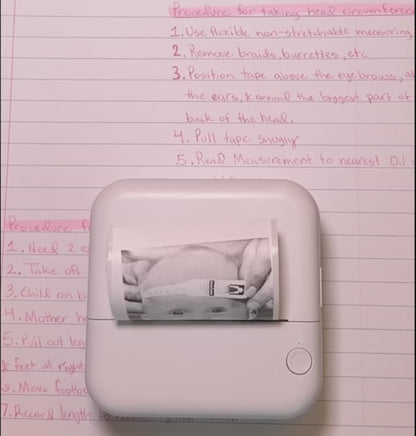 Procedure for taking head circumferenc
1. Use flexible non-stretchable measuring
2. Remove braids, barrettes, etc
3. Position tape above the eyebrows, a
the ears, & around the biggest part of
back of the head.
4. Pull tape snugly
5. Read Measurement to nearest 0.1
Procedure f
1. Need 2 e
2. Take off
3. Child on b
4. Mother h
5. Pull out leg
& feet at right
6. Move footbo
7. Record length to